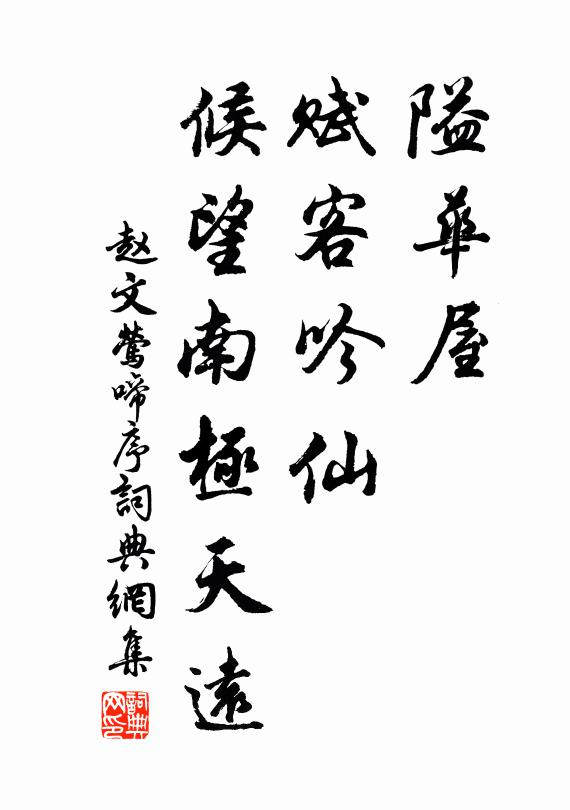 隘華屋
賦客吟仙
候望南極天遠
赵文鶯啼序詞典網集
詞典網印